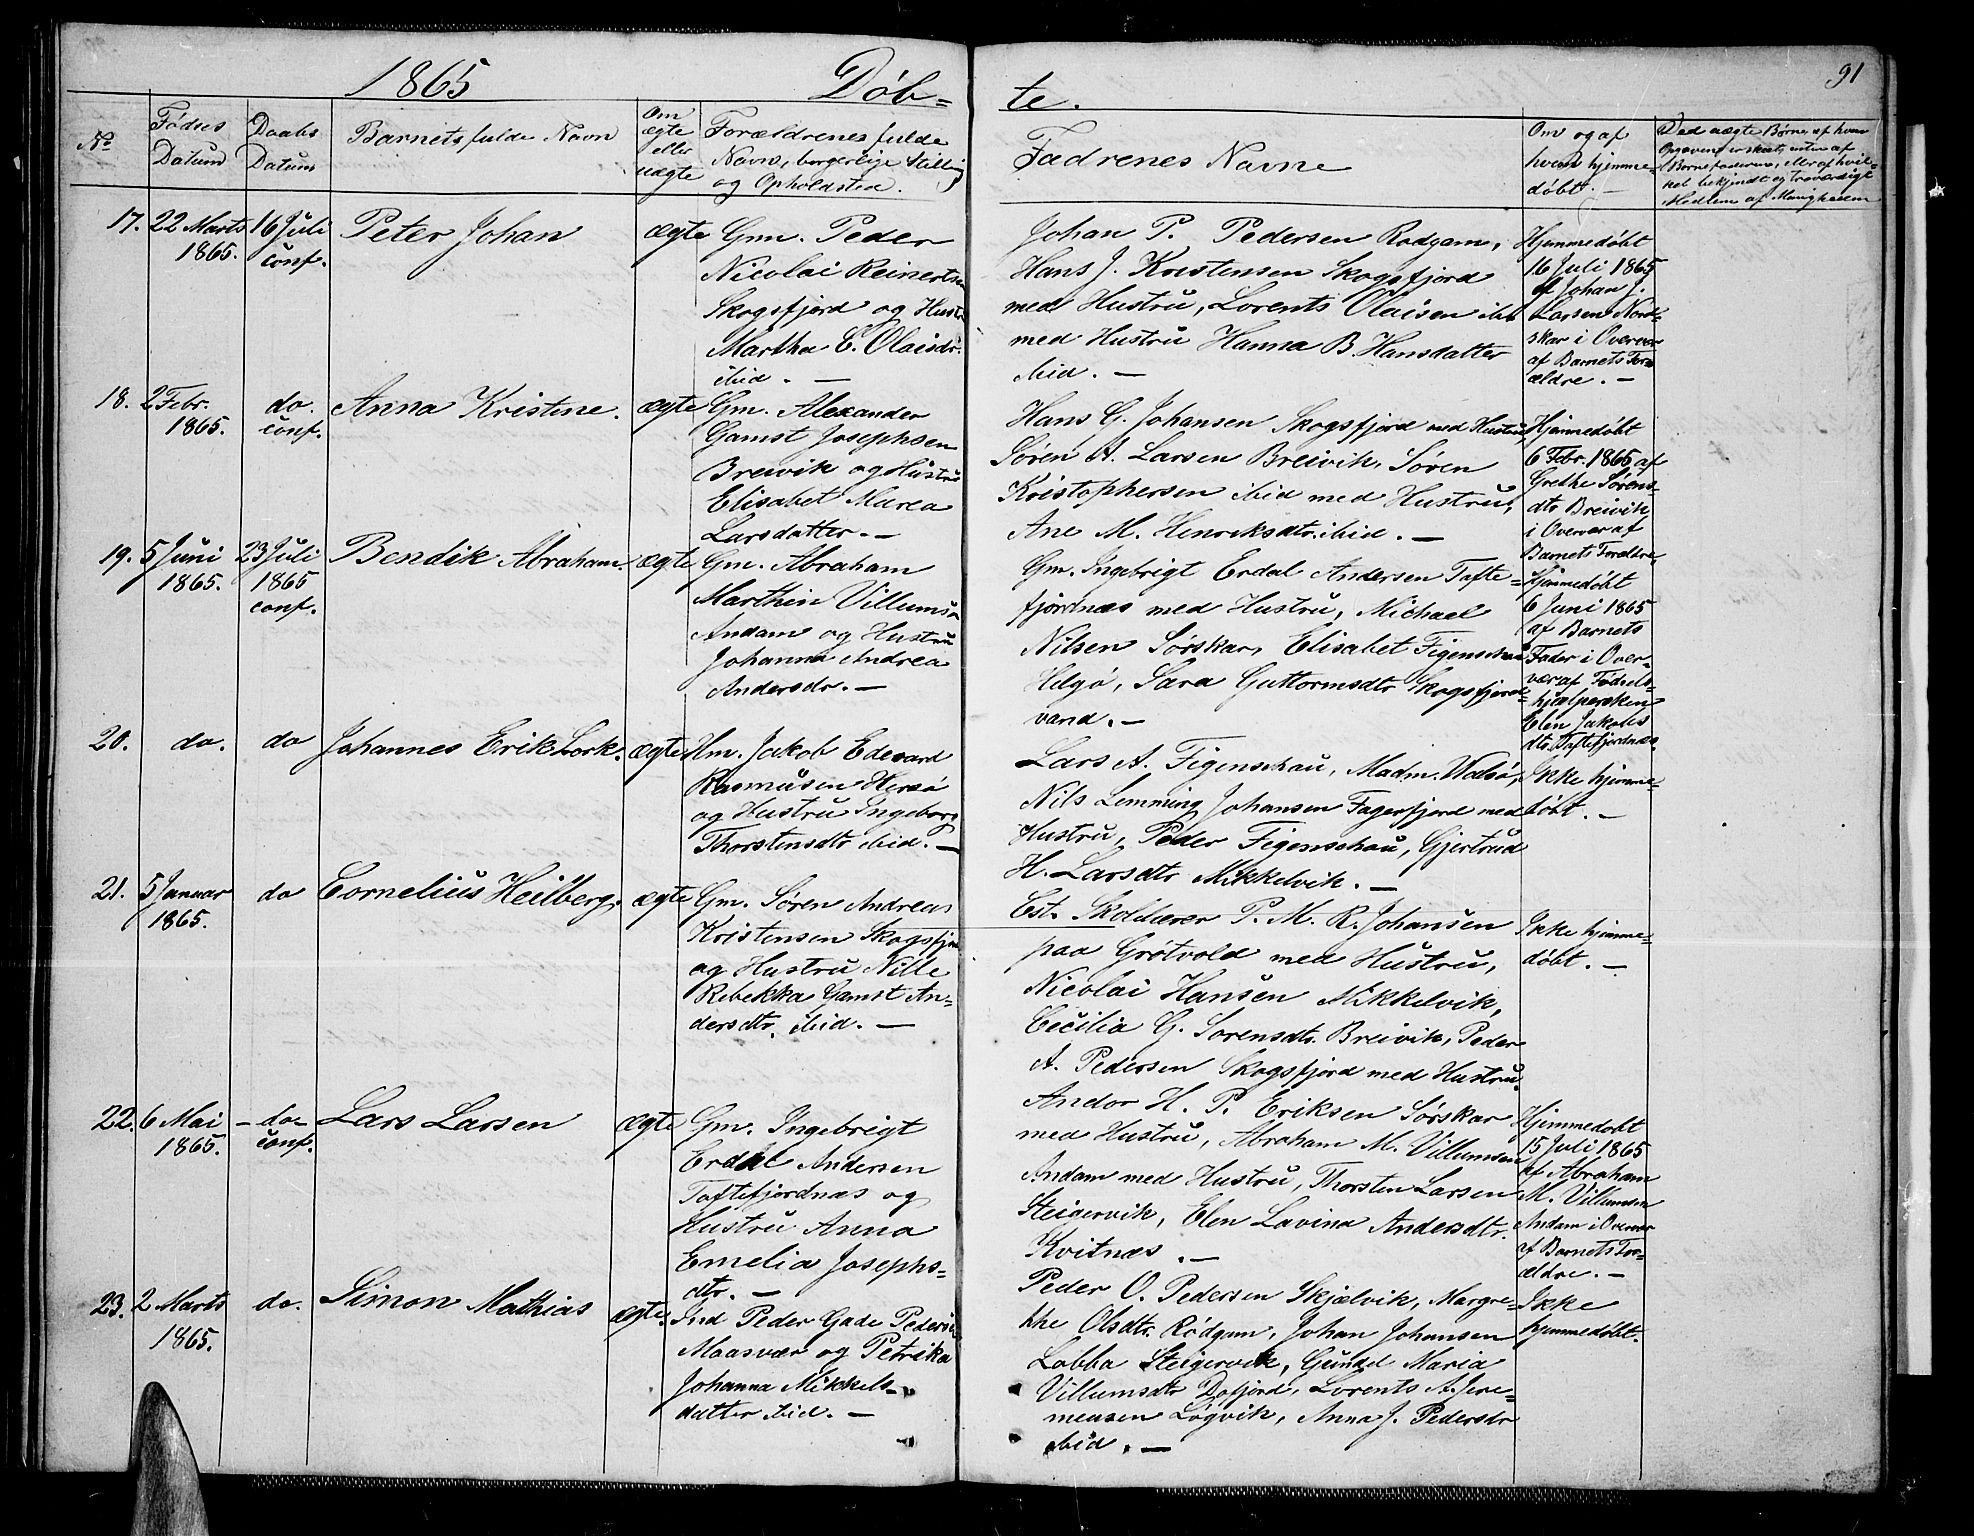 1865
Døb=
te.
91
No
Fødses
Datum
Daabs
Datum
Barnets fulde Navn
Om
ægte
eller
uægte
Forældrenes fulde
Navn, borgerlige Stilling
og Opholdsted.
Fadrenes Navne
Om og af
hvem hjemme
døbt. —
17. 22 Marts
1865.
16 Juli
conf.
Peter Johan
ægte
Gmn. Peder
Nicolai Reinertsen
Skogsfjord og Hustru
Martha E. Olaisdr.
ibid. —
Johan P. Pedersen Rødgam,
Hans J. Kristensen Skogsfjord
med Hustru, Lorents Olaisen ibd
med Hustru Hanna B. Hansdatter
ibid. —
Hjemmedøbt
16 Juli 1865
af Johan J.
Larsen Nord-
skar i Overvær
af Barnets For-
ældre. —
18. 2 Febr.
1865.
do.
conf.
Anna Kristine.
ægte
Gm. Alexander
Gamst Josephsen
Breivik og Hustru
Elisabet Marea
Larsdatter. —
Hans G. Johansen Skogsfjord med Hustru,
Søren A. Larsen Breivik, Søren
Kristophersen ibid med Hustru,
Ane M. Henriksdtr. ibid. —
Hjemmedøbt
6 Febr. 1865 af
Grethe Sørens-
dtr Breivik
i Overvær af
Barnets Forældre.
19. 5 Juni
1865.
23 Juli
1865
conf.
Bendik Abraham.
ægte
Gm. Abraham
Marthin Villumsen
Andam og Hustru
Johanna Andrea
Andersdr. —
Gm. Ingebrigt Erdal Andersen Tofte=
fjordnæs med Hustru, Michael
Nilsen Sørskar, Elisabet Figenschau
Helgø, Sara Guttormsdtr Skogsfjord=
vand. —
Hjemmedøbt
6 Juni 1865
af Barnets
Fader i Over-
vær af Fødsels-
hjælpersken
Elen Jakobs
dtr. Toftefjordnæs.
20.
do.
do
Johannes Erik Lork.
ægte
Hm. Jakob Edevard
Rasmusen Hersø
og Hustru Ingeborg
Thorstensdtr ibid. —
Lars A. Figenschau, Madm. Walsø,
Nils Lemming Johansen Fagerfjord med
Hustru, Peder Figenschau, Gjertrud
H. Larsdtr Mikkelvik. —
Ikke hjemme-
døbt. —
21. 5 Januar
1865.
do
Cornelius Heilberg.
ægte
Gm. Søren Andreas
Kristensen Skogsfjord
og Hustru Nille
Rebekka Gamst An=
dersdtr. ibid. —
Est. Skolelærer P. M. R. Johansen
paa Grøtvold med Hustru,
Nicolai Hansen Mikkelvik,
Cecilia G. Sørensdtr. Breivik, Peder
A. Pedersen Skogsfjord med Hustru.
Ikke hjemme-
døbt. —
22. 6 Mai
1865.
- do -
conf.
Lars Larsen
ægte
Gm. Ingebrigt
Erdal Andersen
Toftefjordnæs og
Hustru Anna
Emelia Josephs-
dtr. —
Andor H. P. Eriksen Sørskar
med Hustru, Abraham M. Villumsen
Andam med Hustru, Thorsten Larsen
Steigervik, Elen Lavina Andersdtr.
Kvitnæs. —
Hjemmedøbt
15 Juli 1865
af Abraham
M. Villumsen
Andam i Overvær
af Barnets For-
ældre. —
23. 2 Marts
1865.
do.
Simon Mathias
ægte.
Ind Peder Gade Pedersen
Maasvær og Petrika
Johanna Mikkels-
datter ibid. —
Peder O. Pedersen Skjælvik, Margre=
the Olsdtr. Rødgam, Johan Johansen
Labba Steigervik, Gundel Maria
Villumsdtr Dafjord, Lorents A. Jere=
meusen Løgvik, Anna J. Pedersdr
ibid. —
Ikke
hjemmedøbt.